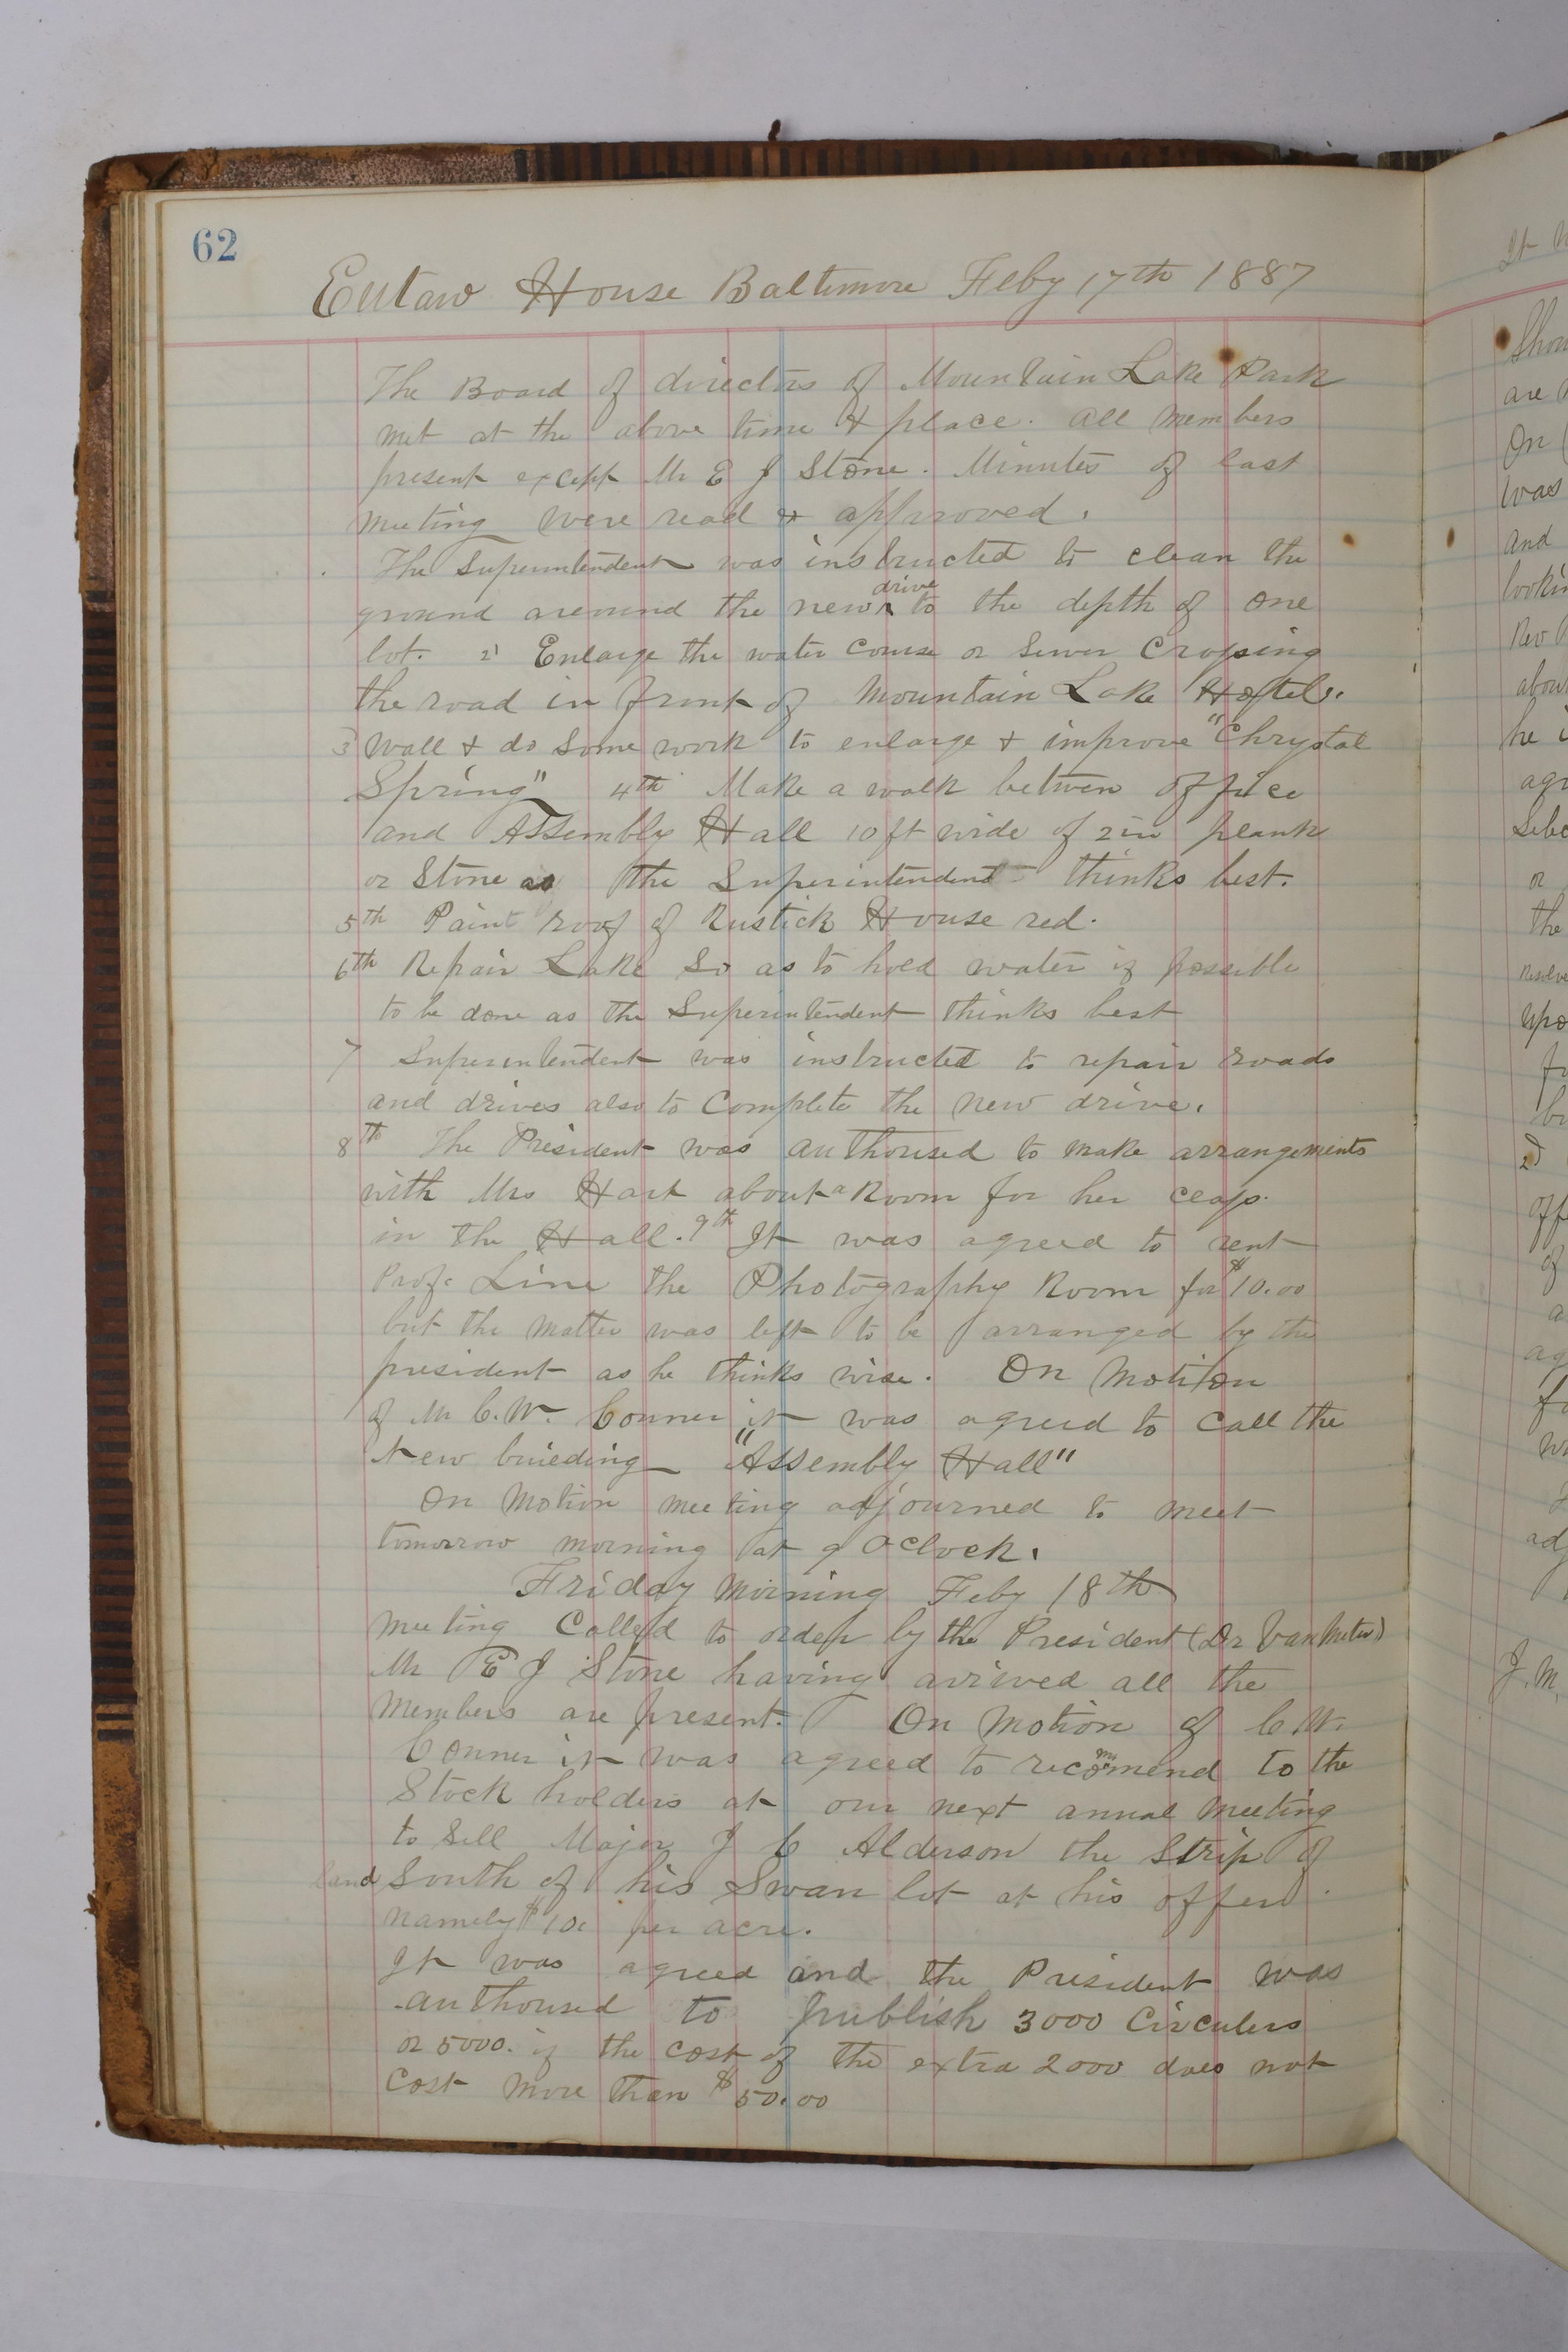 62
Eutaw House Baltimore Feby 17th 1887
The Board of directors of Mountain Lake Park
met at the above time & place. All members
present except Mr E J Stone. Minutes of last
meeting were read & approved.
The Superintendent was instructed to clean the
drive
ground around the new ^ to the depth of one
lot. 2' Enlarge the water course or sewer Crossing
the road in front of Mountain Lake Hotel.
3 Wall & do some work to enlarge & improve "Chrystal
Spring" 4th Make a walk between office
and Assembly Hall 10 ft wide of 2 in plank
or Stone as the Superintendent thinks best.
5th Paint roof of Rustick House red.
6th Repair Lake so as to hold water if possible
to be done as the Superintendent thinks best
7 Superintendent was instructed to repair roads
and drives also to Complete the new drive.
8th The President was authorised to make arrangements
with Mrs Hart about a Room for her class
in the Hall. 9th It was agreed to rent
Prof. Line the Photography Room for $10.00
but the matter was left to be arranged by the
president as he thinks wise. On Motion
of Mr C. W. Conner it was agreed to call the
New building "Assembly Hall"
On Motion meeting adjourned to meet
tomorrow morning at 9 OClock.
Friday Morning Feby 18th
Meeting Called to order by the President (Dr Van Meter)
Mr E J Stone having arrived all the
Members are present. On Motion of C W.
Conner it was agreed to recommend to the
Stock holders at our next annual Meeting
to Sell Major J C Alderson the Strip of
land South of his Swan lot at his offer
namely $10. per acre.
It was agreed and the President was
authorised to publish 3000 Circulers
or 5000. if the cost of the extra 2000 does not
Cost More than $50.00
Show
are
On
was
and
lookin
Rev
about
he
agr
or
the
Resolve
upo
2d
off
of
J. M.